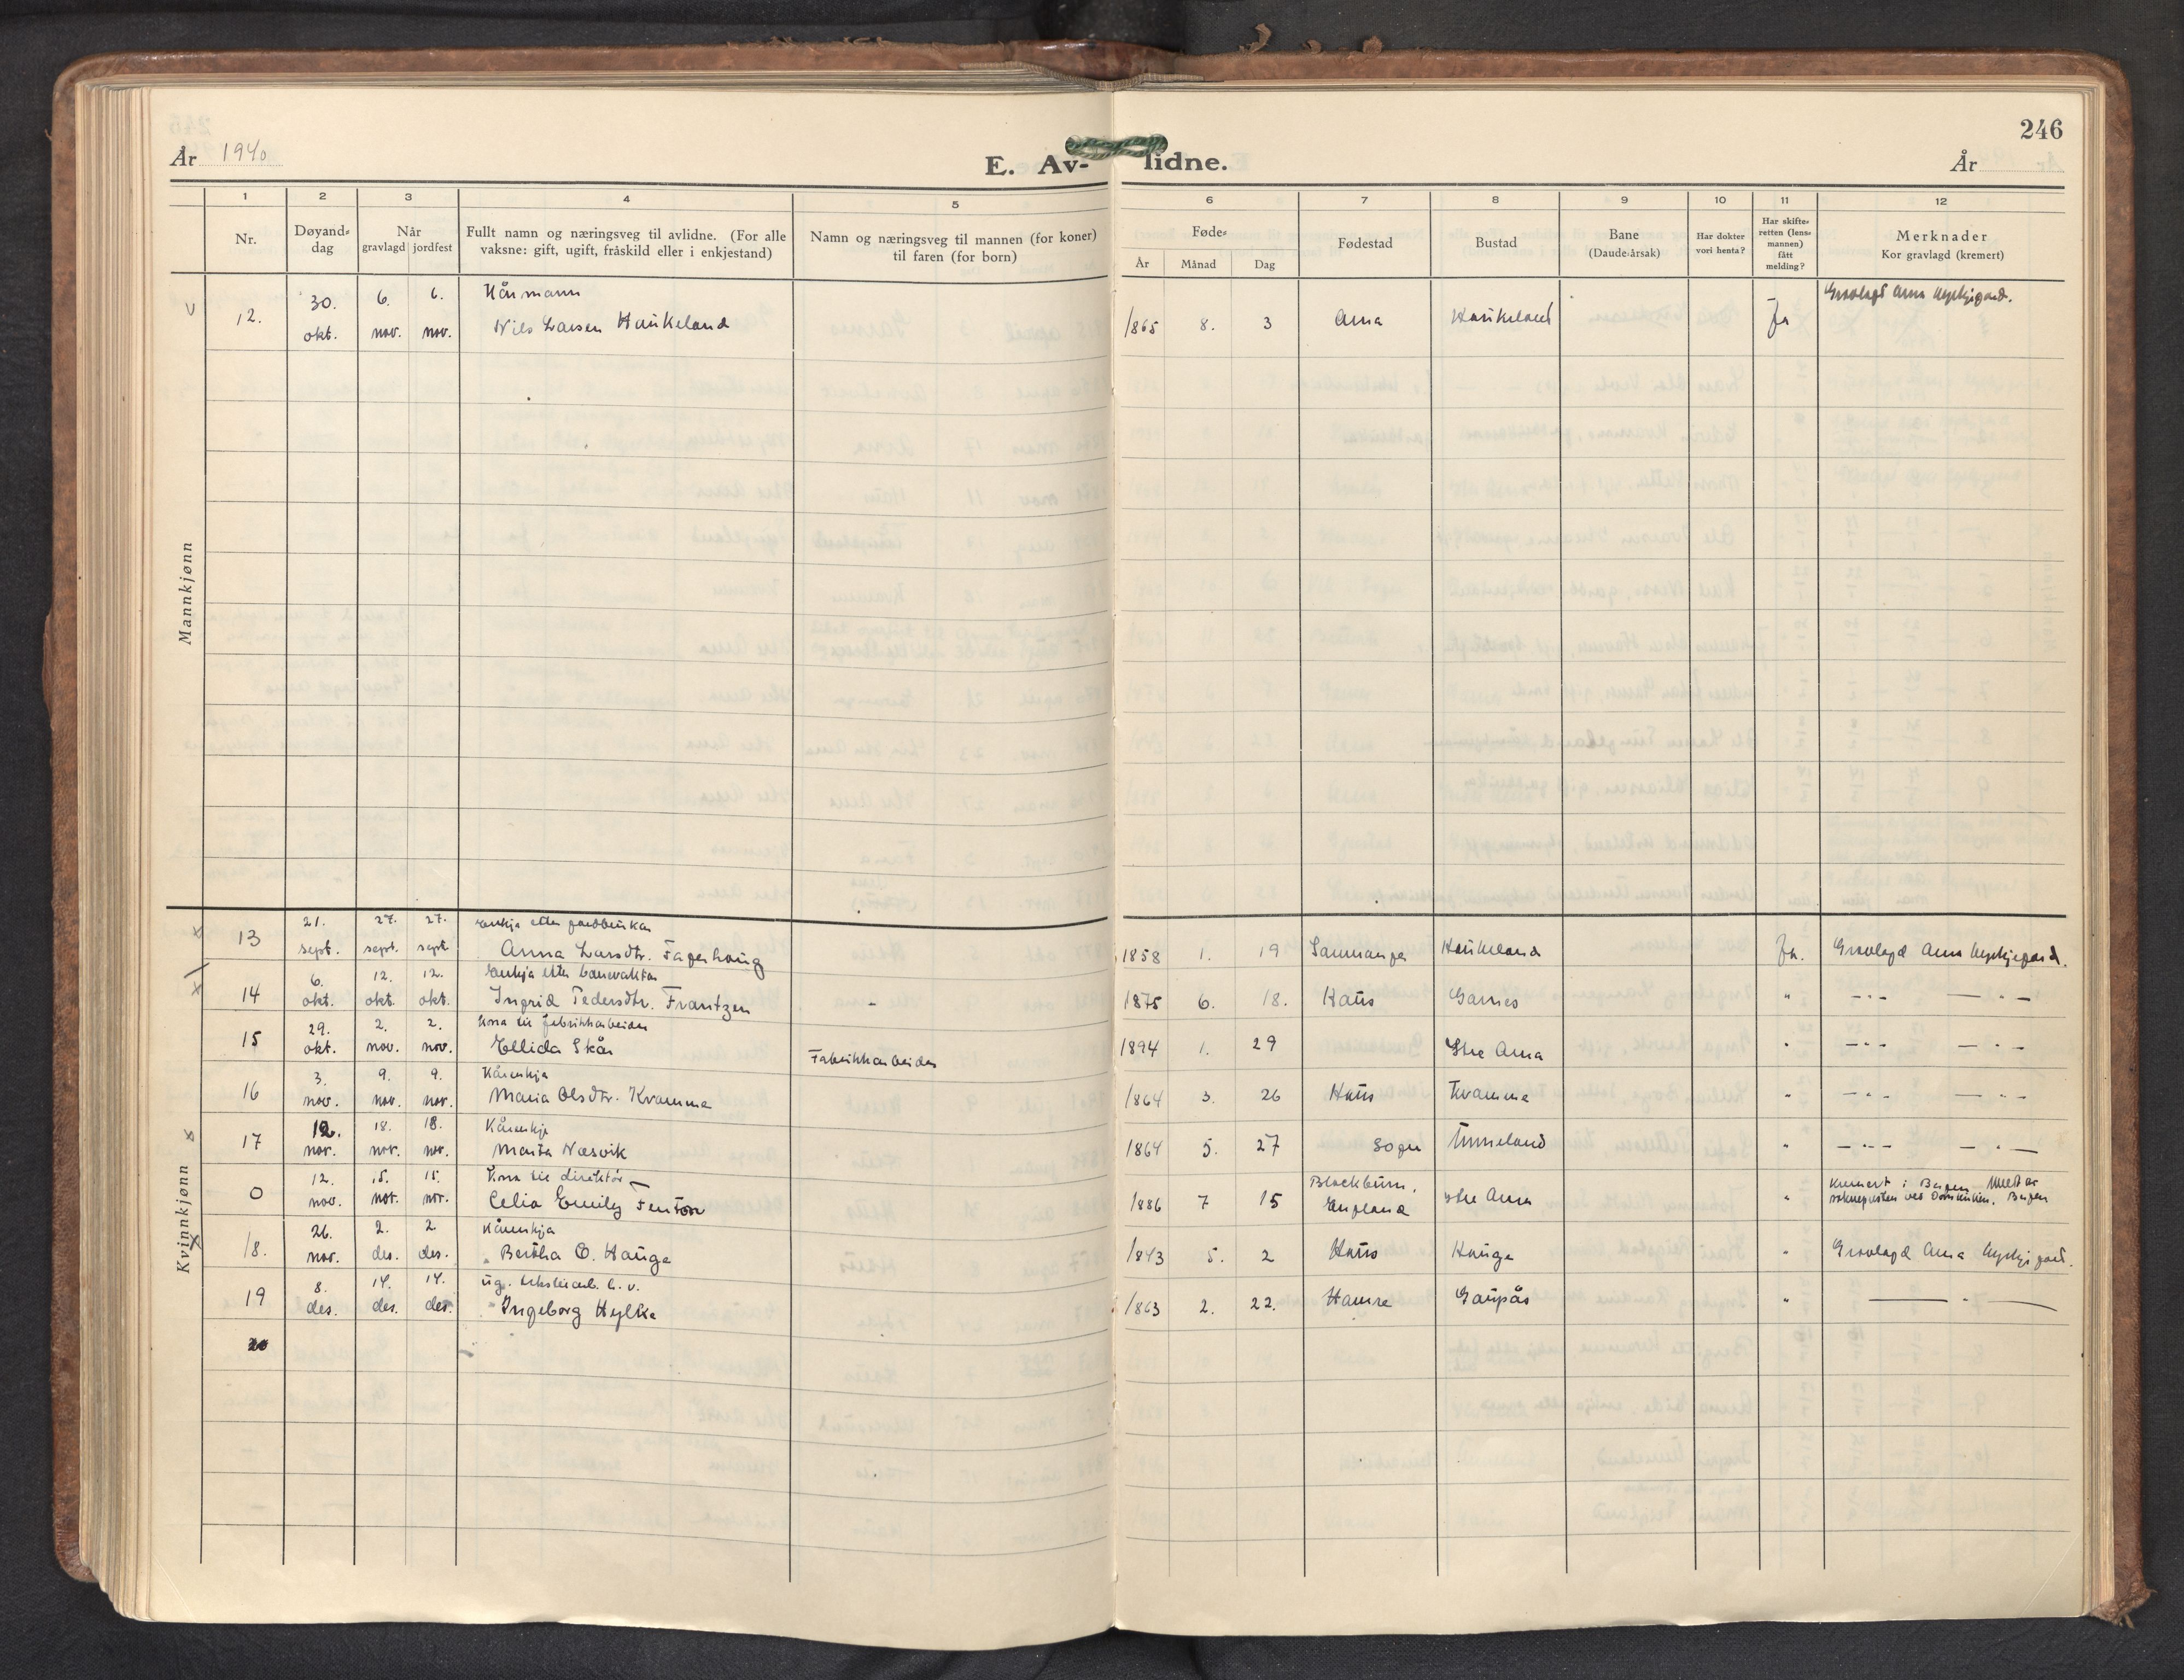 246
År 1940
E. Av- lidne.
År
1 2 3 4 5 6 7 8 9 10 11 12
Nr.
Døyand-
dag
Når
gravlagd jordfest
Fullt namn og næringsveg til avlidne. (For alle
vaksne: gift, ugift, fråskild eller i enkjestand)
Namn og næringsveg til mannen (for koner)
til faren (for born)
Føde-
År Månad Dag
Fødestad
Bustad
Bane
(Daude-årsak)
Har dokter
vori henta?
Har skifte-
retten (lens-
mannen)
fått
melding?
Merknader
Kor gravlagd (kremert)
Mannkjønn
30. 6. 6. Kårmann Gravlagd Arna kyrkjegard.
12. okt. nov. nov. Nils Larsen Haukeland 1865 8. 3 Arna Haukeland Ja
Kvinnkjønn
21. 27. 27. Enkja etter gardbrukar
13 sept. sept. sept. Anna Larsdtr. Fagerhaug 1858 1. 19 Samnanger Haukeland Ja. Gravlagd Arna kyrkjegard.
6. 12. 12. Enkja etter banevaktar
14 okt. okt. okt. Ingrid Pedersdtr. Frantzen - 1875 6. 18. Haus Garnes " — " — — " —
29. 2. 2. Kona til fabrikkarbeidar
15 okt. nov. nov. Ellida Skår Fabrikkarbeidar 1894 1. 29 Ytre Arna " — " — — " —
3. 9. 9. Kårenkja
16 nov. nov. nov. Maria Olsdtr. Kvamme 1864 3. 26 Haus Kvamme " — " — — " —
12. 18. 18. Kårenkja
17 nov. nov. nov. Marta Næsvik 1864 5. 27 Sogn Unneland " — " — — " —
12. 15. 15. Kona til direktør
0 nov. nov. nov. Celia Emily Fenton 1886 7 15 Blackburn, England Ytre Arna " Kremert i Bergen. Meld av
soknepresten ved Domkirken, Bergen
26. 2. 2. Kårenkja
18. nov. des. des. Bertha O. Hauge 1843 5. 2 Haus Hauge " Gravlagd Arna kyrkjegard.
8. 14. 14. ug.
19 des. des. des. Ingeborg Hylke 1863 2. 22. Hamre Gaupås " — " —
20